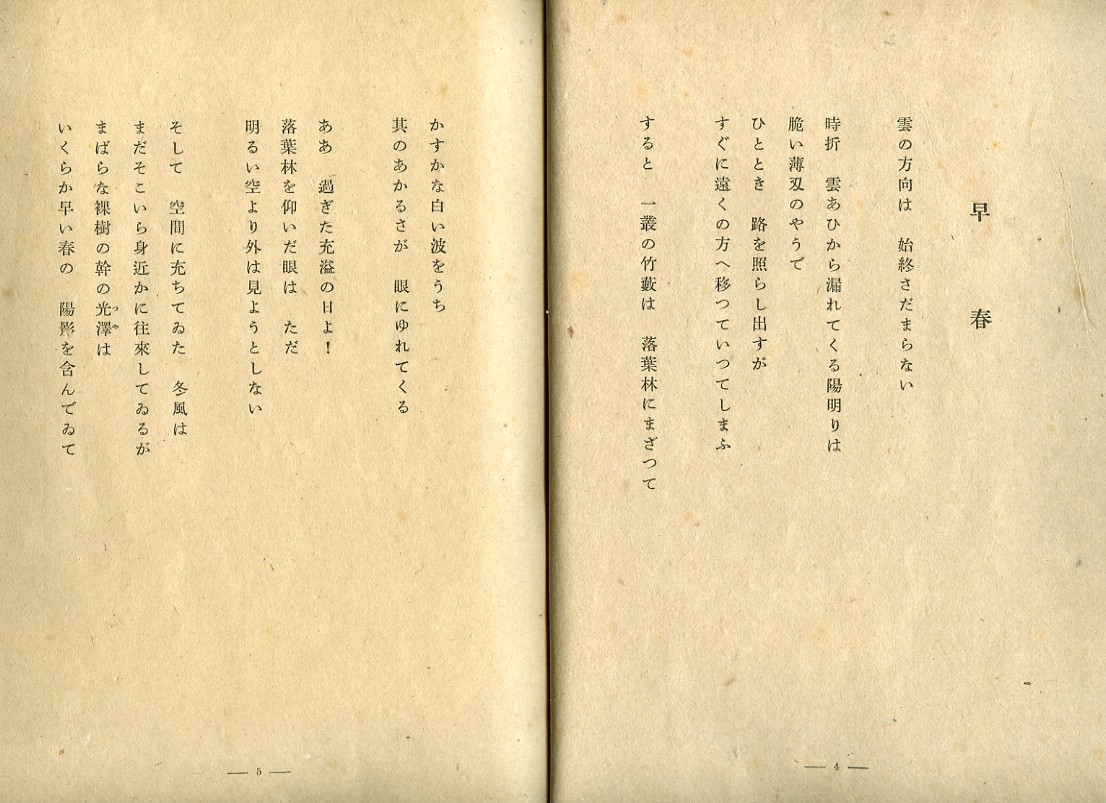 早春
雲の方向は　始終さだまらない
時折　雲あひから漏れてくる陽明りは
脆い薄刄のやうで
ひととき　路を照らし出すが
すぐに遠くの方へ移つていつてしまふ
すると　一叢の竹藪は　落葉林にまざつて
— 4 —
かすかな白い波をうち
其のあかるさが　眼にゆれてくる
ああ　過ぎた充溢の日よ！
落葉林を仰いだ眼は　ただ
明るい空より外は見ようとしない
そして　空間に充ちてゐた　冬風は
まだそこいら身近かに往來してゐるが
まばらな裸樹の幹の光澤は
つや
いくらか早い春の　陽影を含んでゐて
— 5 —